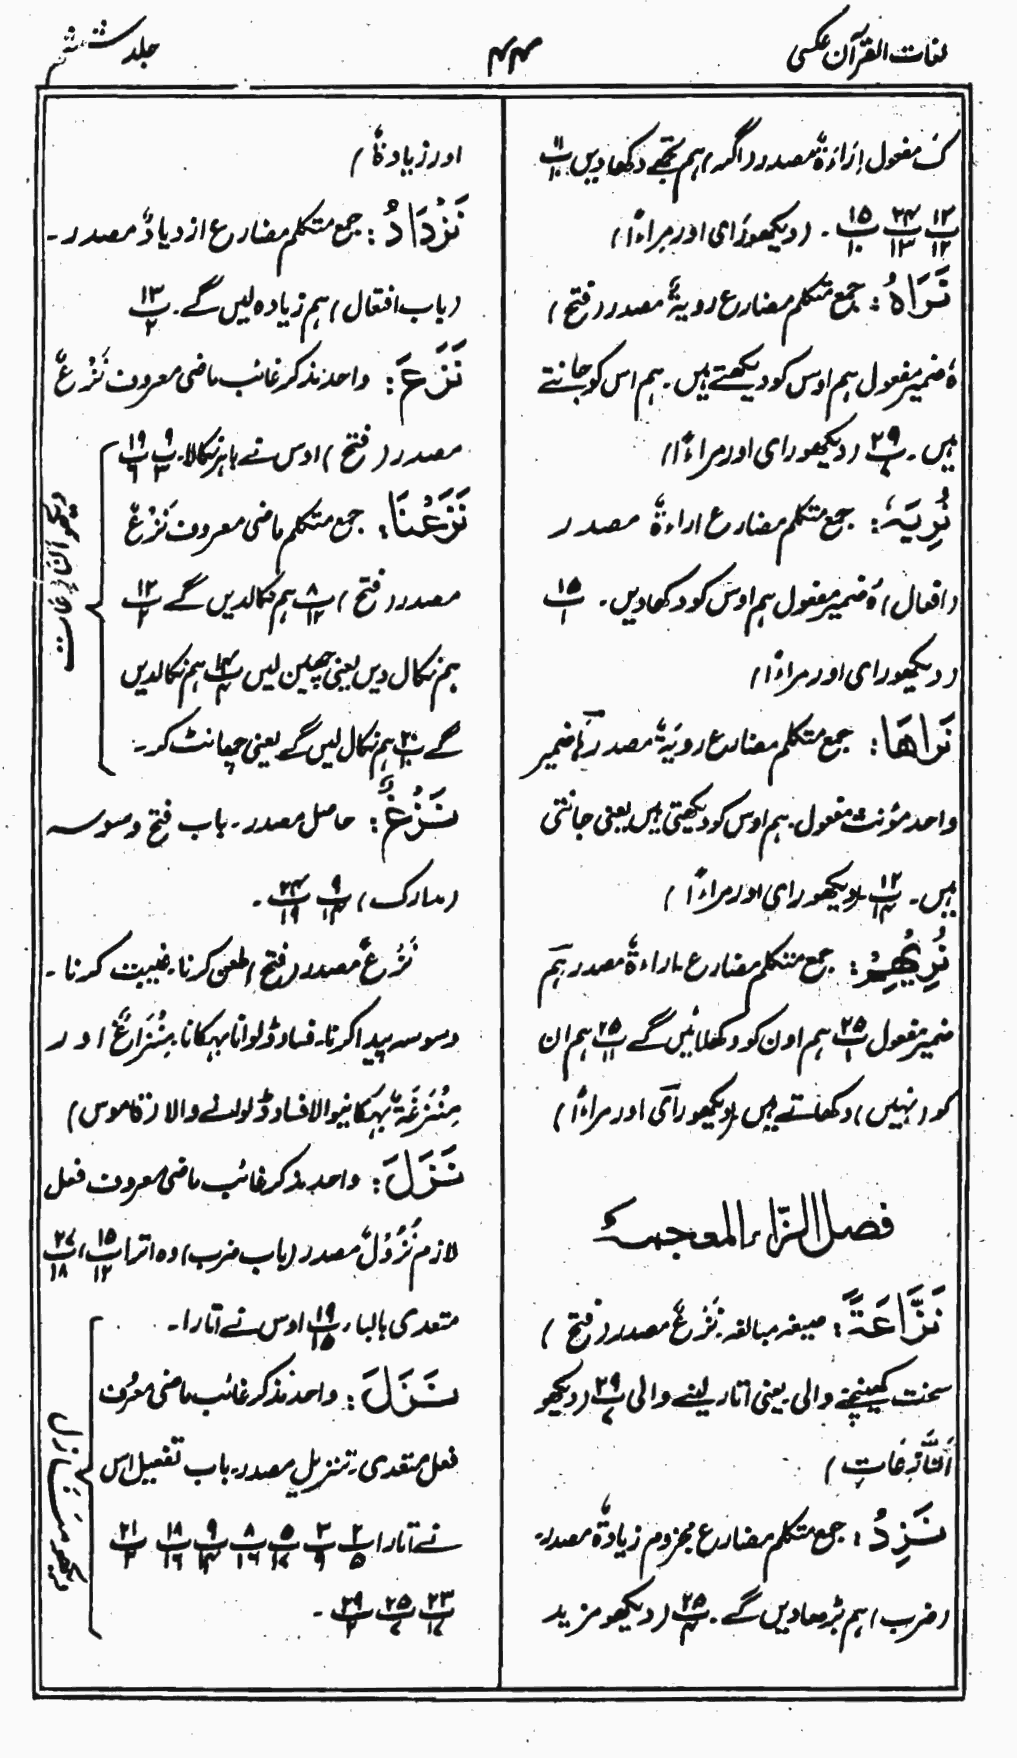 لغات القرآن عکسی
۴۴
جلد ششم
کَ مفعول اِرَاءَۃٌ مصدر (اگر) ہم تجھے دکھادیں ۱۱/۱۰
۱۲/۱۲ ۲۴/۱۳ ۱۵/۱۰ ۔ (دیکھو رَای اور مِراءً ا)
نَرَاہُ : جمع متکلم مضارع رویۃٌ مصدر (فتح)
ہٗ ضمیر مفعول ہم اوس کو دیکھتے ہیں۔ ہم اس کو جانتے
ہیں۔ ۲۹/۷ (دیکھو رای اور مراءً ا)
نُرِیَہٗ : جمع متکلم مضارع اراءۃٌ مصدر
(افعال) ہٗ ضمیر مفعول ہم اوس کو دکھادیں۔ ۱۵/۱
(دیکھو رای اور مراءً ا)
نَرَاھَا : جمع متکلم مضارع رویَۃٌ مصدر ھَا ضمیر
واحد مؤنث مفعول۔ ہم اوس کو دیکھتی ہیں یعنی جانتی
ہیں۔ ۱۲/۱۴ (دیکھو رای اور مراءً ا)
نُرِیْھِمْ : جمع متکلم مضارع۔ اراءۃٌ مصدر ہم
ضمیر مفعول ۲۵/۱ ہم اون کو دکھلائیں گے ۲۵/۱۱ ہم ان
کو (نہیں) دکھاتے ہیں (دیکھو رآی اور مراءً ا)
فصل الزّاء المعجمۃ
نَزَّاعَۃً : صیغہ مبالغہ۔ نَزْعٌ مصدر (فتح)
سخت کھینچنے والی یعنی اتار لینے والی ۲۹/۷ (دیکھو
اَلنَّازِعَاتِ)
نَزِدْ : جمع متکلم مضارع مجزوم زیادۃٌ مصدر۔
(ضرب) ہم بڑھادیں گے۔ ۲۵/۴ (دیکھو مزید
اور زیادۃٌ)
نَزْدَادُ : جمع متکلم مضارع ازدیادٌ مصدر۔
(باب افتعال) ہم زیادہ لیں گے۔ ۱۳/۲
نَزَعَ : واحد مذکر غائب ماضی معروف نَزْعٌ
مصدر (فتح) اوس نے باہر نکالا۔ ۹/۳ ۱۹/۶
نَزَعْنَا : جمع متکلم ماضی معروف نَزْعٌ
مصدر (فتح) ۸/۱۲ ہم نکالدیں گے ۱۲/۲
ہم نکال دیں یعنی چھین لیں ۱۴/۴ ہم نکالدیں
گے ۲۰/۱۰ ہم نکال لیں گے یعنی چھانٹ کر۔
دیکھو النازعات
نَزْغٌ : حاصل مصدر۔ باب فتح وسوسہ
(مدارک) ۹/۱۴ ۲۴/۱۹ ۔
نَزْغٌ مصدر (فتح) طعن کرنا۔ غیبت کرنا۔
وسوسہ پیدا کرنا۔ فساد ڈلوانا بہکانا۔ مِنْزَاغٌ اور
مِنْزَغَۃٌ بہکانیوالا فساد ڈلوانے والا (قاموس)
نَزَلَ : واحد مذکر غائب ماضی معروف فعل
لازم نُزُوْلٌ مصدر (باب ضرب) وہ اترا ۱۵/۱۲، ۲۷/۱۸
متعدی بالباء ۱۹/۱۵ اوس نے اتارا۔
نَزَّلَ : واحد مذکر غائب ماضی معروف
فعل متعدی۔ تنزیل مصدر۔ باب تفعیل اس
نے اتارا ۲/۵ ۳/۹ ۵/۱۷ ۸/۱۶ ۹/۱۴ ۱۸/۱۶ ۲۱/۳
۲۳/۱۷ ۲۵/۷ ۲۹/۲ ۔
دیکھو منازل